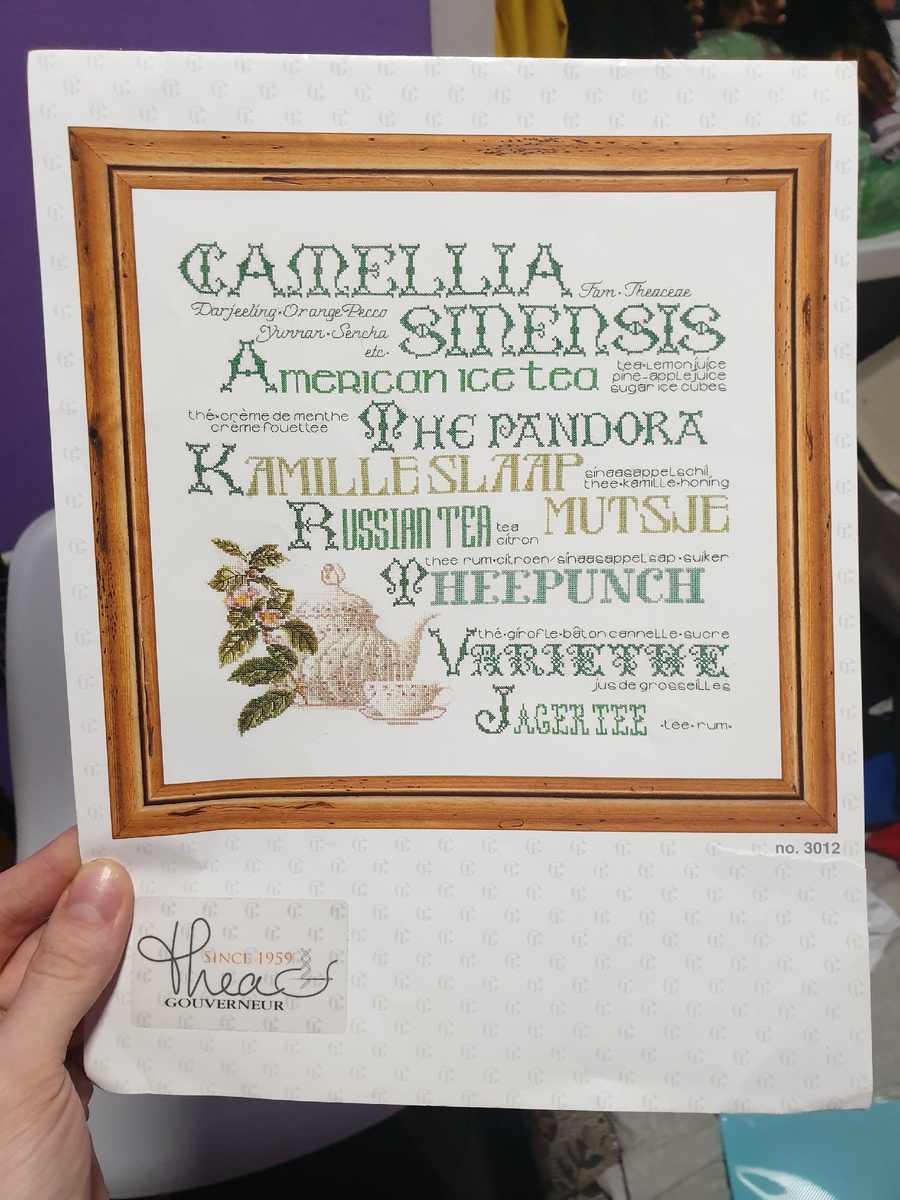 CAMELLIA
Fam·Theaceae
Darjeeling·Orange Pecco
Yunnan·Sencha
etc·
SINENSIS
American ice tea
tea·lemonjuice
pine-applejuice
sugar ice cubes
thé·crème de menthe
crème fouettee
THE PANDORA
KAMILLE SLAAP
sinaasappelschil,
thee·kamille·honing
MUTSJE
RUSSIAN TEA
tea
citron
thee rum·citroen/sinaasappelsap·suiker
THEEPUNCH
thé·girofle·bâton cannelle·sucre
VARIETHE
jus de grosseilles
JAGERTEE
·tee·rum·
no. 3012
SINCE 1959
theaG
GOUVERNEUR